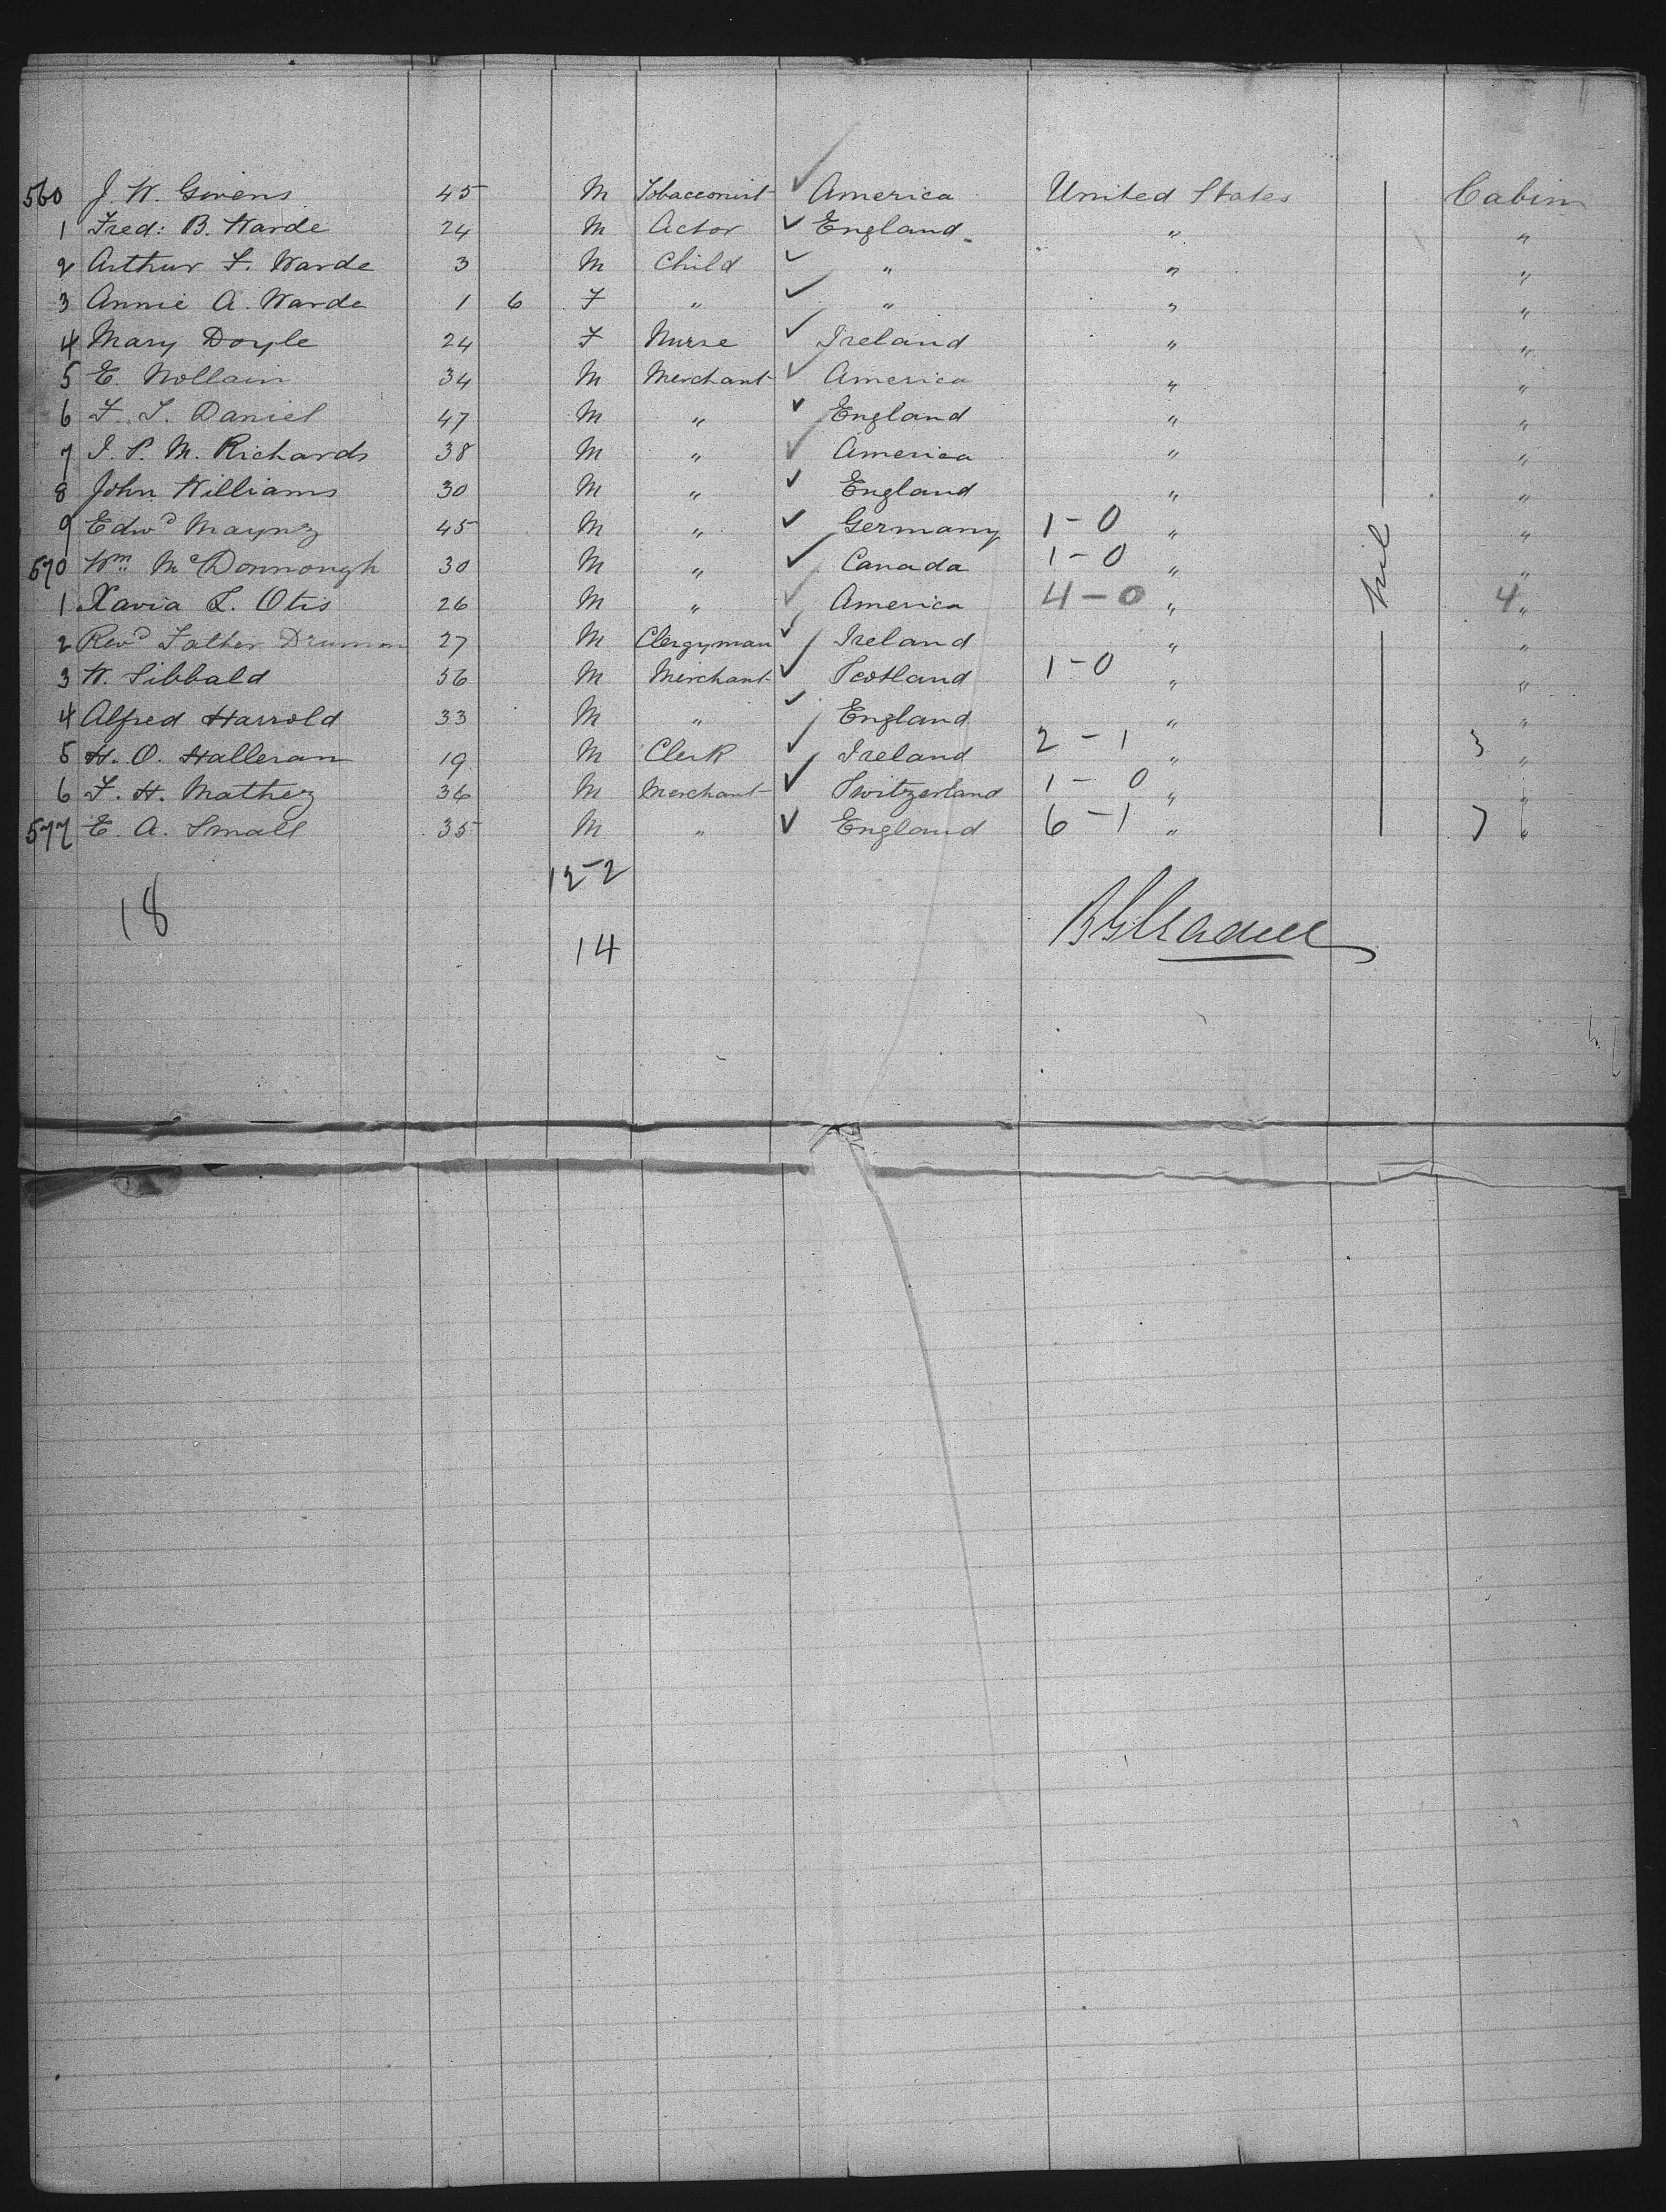 560 J. W. Givens 45 M Tobacconist ✓ America United States Cabin
1 Fred: B. Warde 24 M Actor ✓ England " "
2 Arthur F. Warde 3 M Child ✓ " " "
3 Annie A. Warde 1 6 F " ✓ " " "
4 Mary Doyle 24 F Nurse ✓ Ireland " "
5 E. Nollain 34 M Merchant ✓ America " "
6 F. J. Daniel 47 M " ✓ England " "
7 J. P. M. Richards 38 M " ✓ America " "
8 John Williams 30 M " ✓ England " "
9 Edwd Maynz 45 M " ✓ Germany 1-0 " "
570 Wm. McDonnough 30 M " ✓ Canada 1-0 " nil "
1 Xavia L. Otis 26 M " ✓ America 4-0 " 4 "
2 Revd Father Drumm 27 M Clergyman ✓ Ireland " "
3 W. Sibbald 56 M Merchant ✓ Scotland 1-0 " "
4 Alfred Harrold 33 M " ✓ England " "
5 H. O. Halleran 19 M Clerk ✓ Ireland 2-1 " 3 "
6 F. H. Mathez 36 M Merchant ✓ Switzerland 1-0 " "
577 E. A. Small 35 M " ✓ England 6-1 " 7 "
12-2
18
14